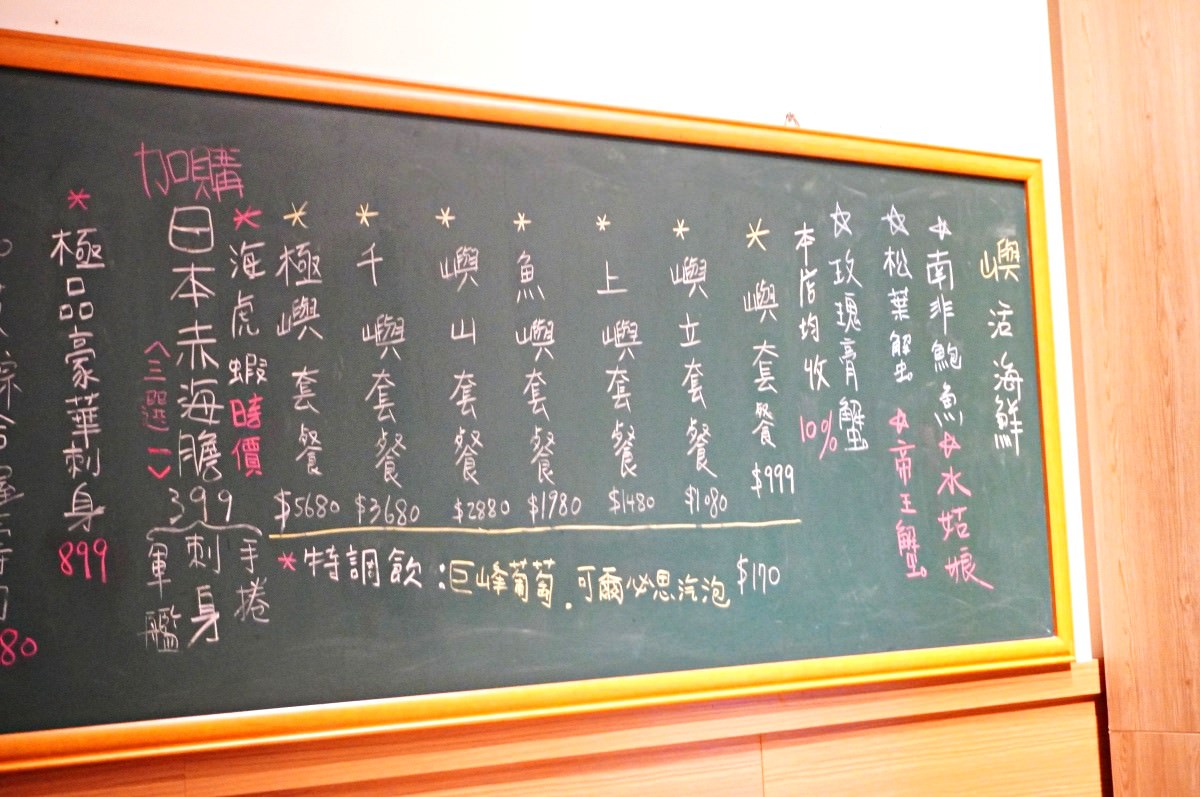 嶼 活海鮮
☆南非鮑魚☆水姑娘
☆松葉蟹 ☆帝王蟹
☆玫瑰膏蟹
本店均收10%
*嶼套餐 $999
*嶼立套餐 $1080
*上嶼套餐 $1480
*魚嶼套餐 $1980
*嶼山套餐 $2880
*千嶼套餐 $3680
*極嶼套餐 $5680
*特調飲:巨峰葡萄.可爾必思汽泡 $170
加購
*海虎蝦時價
日本赤海膽399
手捲
刺身
軍艦
<三選一>
*極品豪華刺身899
80